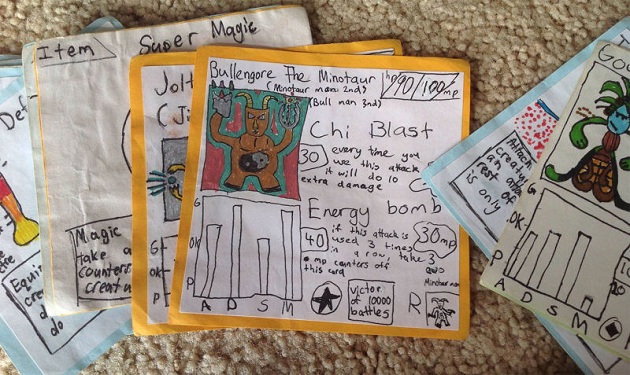 Item
Super Magic
Def
Magic
take a
counter
creatu
Equi
cre
d
do
Jolt
(Ji
G
OK
P
Bullengore The Minotaur
hp 90/100 mp
(Minotaur man 2nd)
(Bull man 3nd)
Chi Blast
30
every time you
use this attack
it will do 10
extra damage
Energy bomb
40
if this attack is
used 3 times
in a row, take 3
mp counters off
this card
30mp
G
OK
P
A D S M
victor
of 10000
battles
R
Minotaur man
Attach
creatu
an
rest of
is only
Go
G
OK
P
A D S M